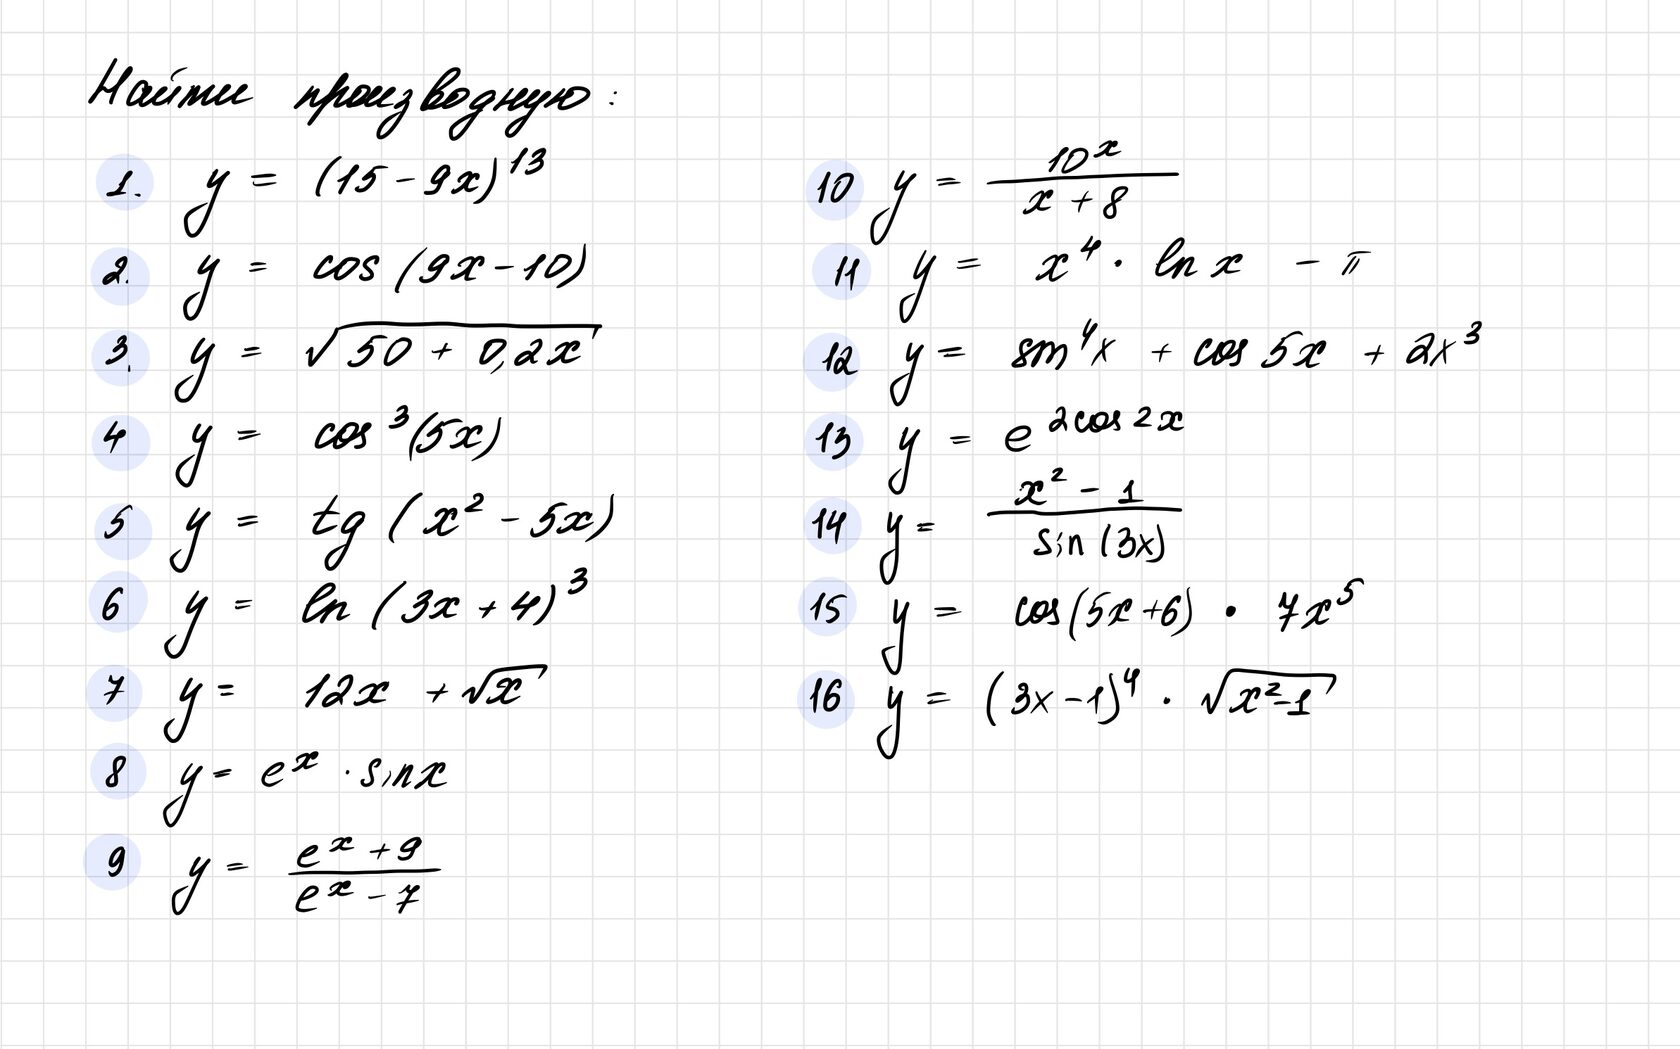 Найти производную:
1. y = (15 - 9x)^13
2. y = cos (9x - 10)
3. y = √(50 + 0,2x)
4 y = cos^3(5x)
5 y = tg (x^2 - 5x)
6 y = ln (3x + 4)^3
7 y = 12x + √x
8 y = e^x · sinx
9 y = (e^x + 9)/(e^x - 7)
10 y = 10^x/(x + 8)
11 y = x^4 · ln x - π
12 y = sin^4x + cos 5x + 2x^3
13 y = e^(2cos 2x)
14 y = (x^2 - 1)/sin (3x)
15 y = cos(5x+6) · 7x^5
16 y = (3x - 1)^4 · √(x^2-1)